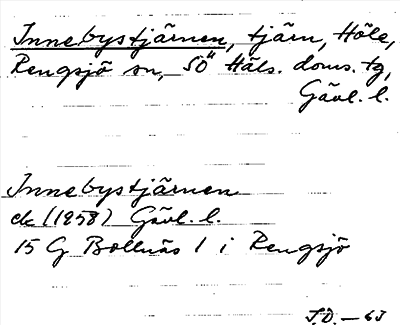 Innebystjärnen, tjärn, Höle,
Rengsjö sn, SÖ Häls. doms. tg,
Gävl. l.
Innebystjärnen
ek (1958) Gävl. l.
15 G Bollnäs 1 i Rengsjö
S.D. – 63